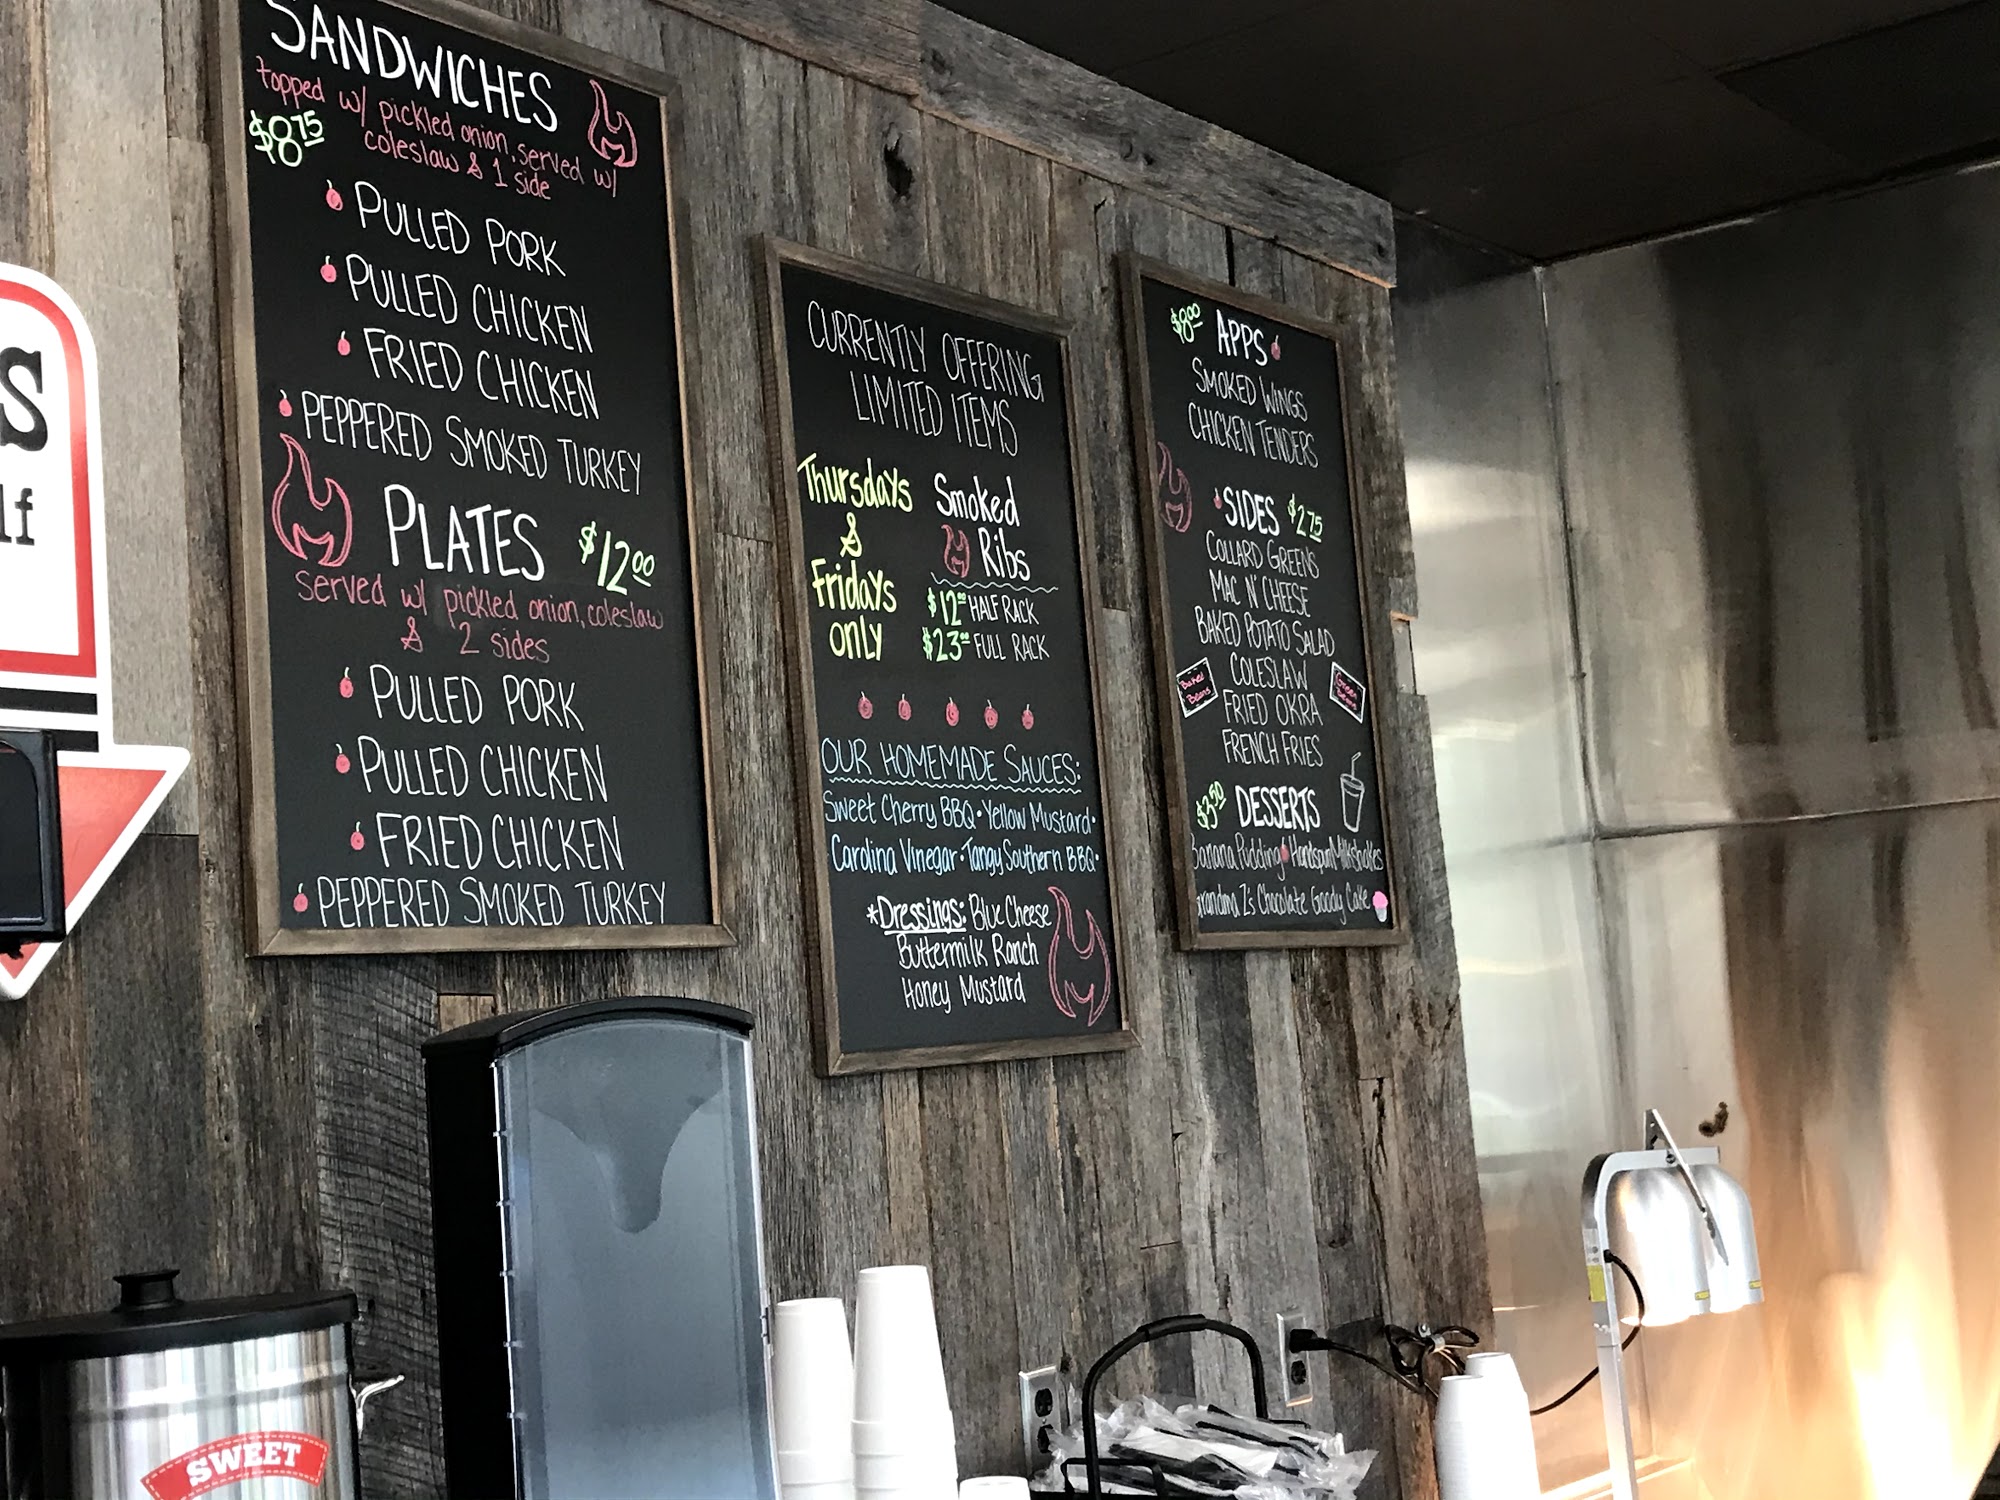 SANDWICHES
topped w/ pickled onion, served w/
$8.75
coleslaw & 1 side
PULLED PORK
PULLED CHICKEN
FRIED CHICKEN
PEPPERED SMOKED TURKEY
PLATES $12.00
served w/ pickled onion, coleslaw
& 2 sides
PULLED PORK
PULLED CHICKEN
FRIED CHICKEN
PEPPERED SMOKED TURKEY
CURRENTLY OFFERING
LIMITED ITEMS
Thursdays
&
Fridays
only
Smoked
Ribs
$12.00 HALF RACK
$23.00 FULL RACK
OUR HOMEMADE SAUCES:
Sweet Cherry BBQ • Yellow Mustard •
Carolina Vinegar • Tangy Southern BBQ •
*Dressings: Blue Cheese
Buttermilk Ranch
Honey Mustard
$8.00 APPS
SMOKED WINGS
CHICKEN TENDERS
SIDES $2.75
COLLARD GREENS
MAC N' CHEESE
BAKED POTATO SALAD
COLESLAW
FRIED OKRA
FRENCH FRIES
Baked
Beans
Green
Beans
$3.50 DESSERTS
Banana Pudding Handspun Milkshakes
Grandma Z's Chocolate Goody Cake
S
lf
SWEET